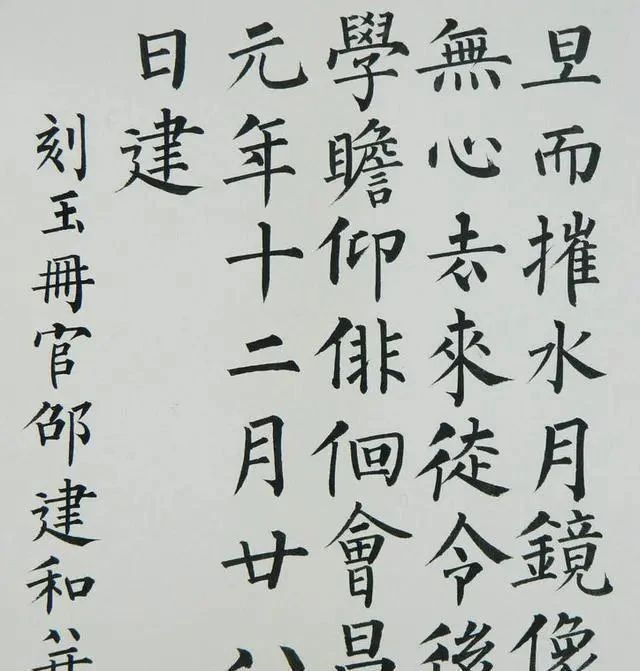 旦而摧水月鏡像
無心去來徒令後
學瞻仰俳佪會昌
元年十二月廿八
日建
刻玉冊官邵建和并